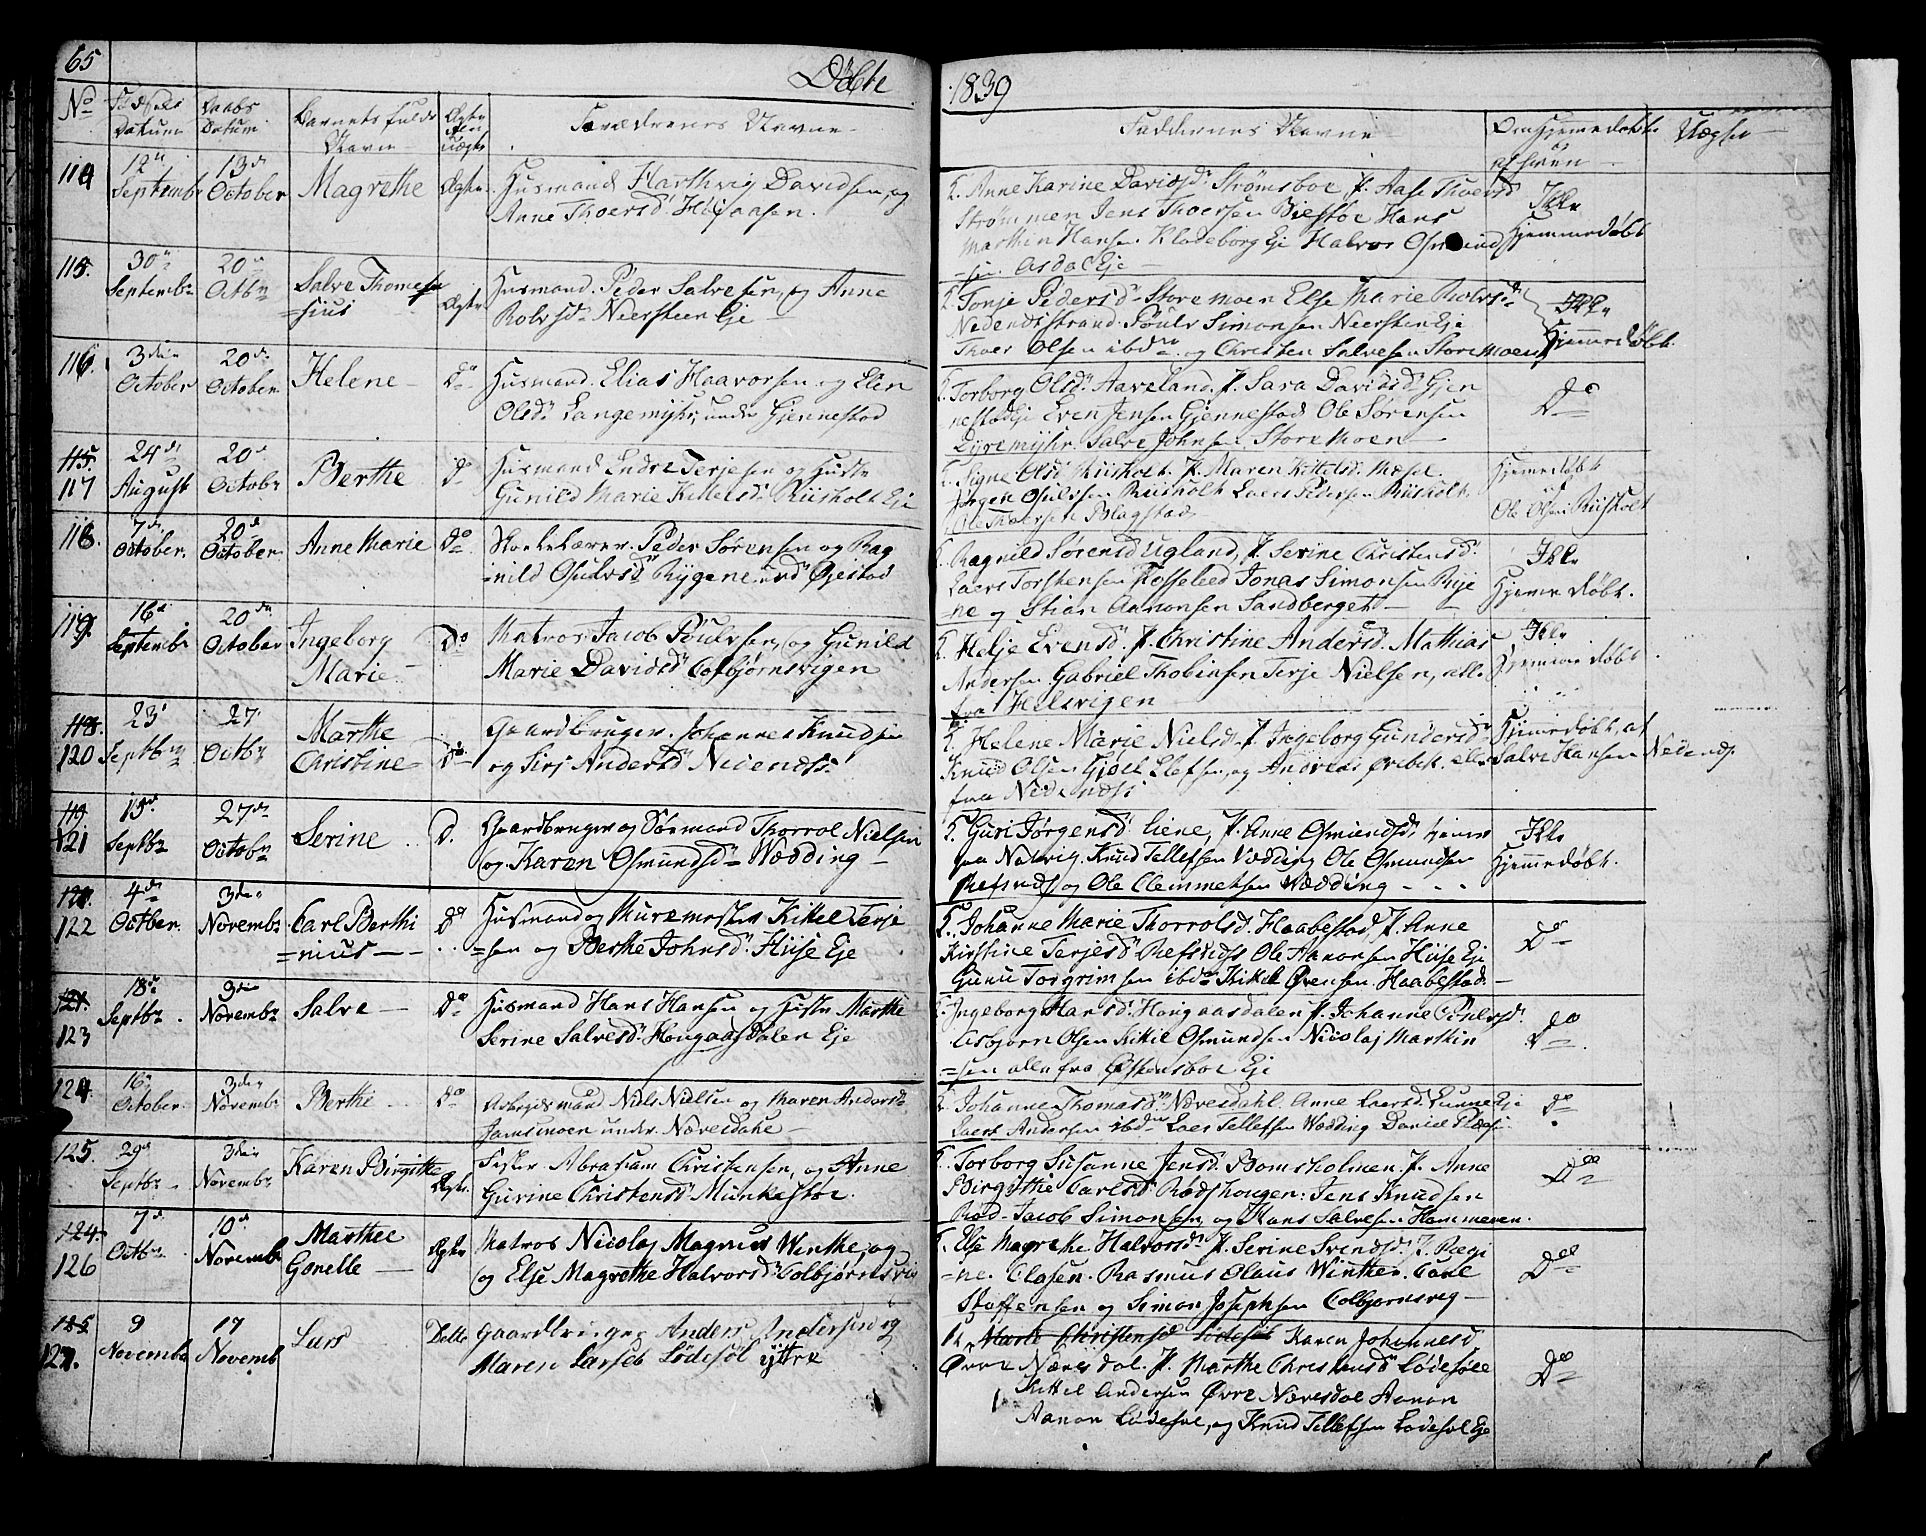 65
Døbte
1839
No
Fødsels Datum
Daabs Datum
Barnets fulde Navn
Ægte eller uægte
Forældrenes Navne
Faddernes Navne
Om Hjemmedøbt af hvem
114
12
September
13de
October
Magrethe
Ægte
Husmand Harthvig Davidsen og
Anne Thoersd.
K. Anne Karine Davidsd. Strømsboe P. Aase Thoersd
Strømmen Jens Thoersen Biestøe Hans
Marthin Hansen Klodeborg Eje Halvor Osmunds
=sen. Asdal Eje
Ikke
Hjemmedøbt
115.
30
Septembr
20
Octbr
Salve Thome
=sius
Ægte
Husmand Peder Salvesen og Anne
Rolvsd. Neersteen Eje
K. Tonje Pedersd. Store Moen Else Marie Rolvsd.
Nedenæsstrand. Poulv Simonsen Neersten Eje
Thoer Olsen ibd. og Christen Salvesen Store Moen
Ikke
Hjemmedøbt
116.
3die
October
20de
October
Helene
Do
Husmand. Elias Haavorsen og Elen
Olsd. Langemyhr, under Gjennestad
K. Torborg Olsd. Aaveland, P. Sara Davidsd. Gjen
nestad Eje Even Jensen Gjennestad Ole Sørensen
Dyremyhr. Salve Johnsen Store Moen
Do
115.
117
24de
August
20de
Octobr
Berthe
Do
Husmand Endre Terjesen og Hustr
Gunild Marie Kittelsd. Riisholt Eje
K. Signe Olsd. Riisholt. P. Maren Kittelsd. Mæsel.
Jørgen Osulvsen Riisholt Laers Pedersen Riisholt
Ole Thoersen Blagstad
Hjemmedøbt
af
Ole Olsen Riisholt
118.
7de
October.
20de
October
Anne Marie
Do
Skolelærer. Peder Sørensen og Rag
=nild Osulvsd. Rygene und Øjestad
K. Ragnild Sørensd. Ugland, P. Serine Christensd.
Laers Torstensen Fosseleed Jonas Simonsen Ryge
=ne og Stian Aanonsen Sandberget
Ikke
Hjemmedøbt.
119.
16de
Septembr
20de
October
Ingeborg
Marie
Do
Matros Jacob Poulvsen, og Gunild
Marie Davidsd. Colbjørnsvigen
K. Helje Evensd. P. Christine Andersd. Mathias
Andersen Gabriel Thobiasen Terje Nielsen, alle
fra Helsvigen
Ikke
Hjemmedøbt
118.
120
23
Septbr
27
Octbr
Marthe
Christine
Do
Gaardbruger. Johannes Knudsen
og Siri Andersd. Nedenæs.
K. Helene Marie Nielsd. P. Ingeborg Gundersd.
Knud Olsen Gjøel Elefsen, og Andreas Ørebek, alle
fra Nedenæs
Hjemmedøbt, af
Salve Hansen Nedenæs.
119
121
15de
Septbr
27de
Octobr
Serine
D.
Gaardbruger og Sømand Thorrol Nielsen
og Karen Osmundsd. Wædding
K. Guri Jørgensd. Liene, P. Anne Osmundsd. hjemme
paa Natvig. Knud Tellefsen Vædding Ole Osmundsen
Refsnæs og Ole Clemmetsen Wædding
Ikke
Hjemmedøbt.
122
4de
Octber.
3die
Novembr
Carl Berthi
=nius
Do
Husmand og Muremester Kittel Terje
=sen og Berthe Johnsd. Huse Eje
K. Johanne Marie Thorrolsd. Haabestad, P. Anne
Kirstine Terjesd. Refsnæs Ole Aanonsen Huse Eje
Gunu Torgrimsen ibd. Kittel Evensen Haabestad.
Do
121.
123
18de
Septbr.
3die
Novembr
Salve
Do
Husmand Hans Hansen og Hustr Marthe
Serine Salvesd. Hougaasdalen Eje
K. Ingeborg Hansd. Hougaasdalen P. Johanne Poulvsd.
Asbjørn Olsen Kittel Osmundsen Nicolaj Marthin
=sen alle fra Østensboe Eje
Do
124.
16
October.
3die
Novembr
Berthe
Do
Arbejdsmand Niels Nielsen og Maren Andersd.
Jomsmoen under. Næversdahl
K. Johanne Thomasd. Næversdahl. Anne Laersd. Lunne Eje
Laers Andersen ibd. Laers Tellefsen Wædding Daniel
Do
125.
29de
Septbr
3die
Novembr
Karen Birgitte
Ægte.
Fisker Abraham Christensen, og Anne
Gurine Christensd. Munkestøe.
K. Torborg Susanne Jensd. Bomsholmen P. Anne
Birgithe Carlsd. Rødshougen. Jens Knudsen
Rød. Jacob Simonsen, og Hans Salvesen Hammeren.
Do
124.
126
7de
Octbr.
10de
Novembr
Marthee
Gonelle
Ægte
Matros Nicolaj Magnus Winthe, og
og Else Magrethe Halvorsd. Colbjørnsvig
K. Else Magrethe Halvorsd. P. Serine Svendsd.
=ne. Clasen. Rasmus Olaus Winther. Carl
Staffensen og Simon Josephsen Colbjørnsvig
Do
125
127.
9
Novembr
17
Novemb
Lars
Dette
Gaardbruger Anders Andersen og
Maren Larsd. Lødesøl ÿttre
K. Marte Christensd Lødesøl Karen Johannesd
Øvre Næversdal. P. Marthe Christensd. Lødesøl
Kittel Andersen Øvre Næversdal Aanon
Aanon Lødesøl, og Knud Tellefsen Lødesøl Eje
Do